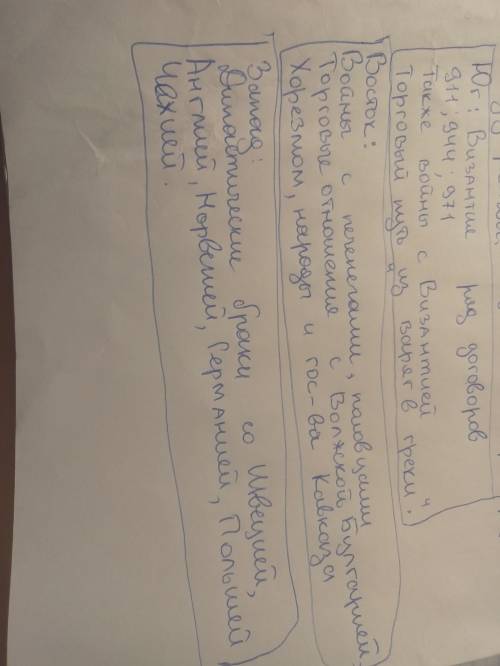 Юг: Византие ряд договоров
911; 944; 971
также войны с Византией
Торговый путь "из варяг в греки".
Восток:
Войны с печенегами, половцами
Торговые отношения с Волжской Булгарией,
Хорезмом, народы и гос-ва Кавказа
Запад:
Династические браки со Швецией,
Англией, Норвегией, Германией, Польшей
Чахией.